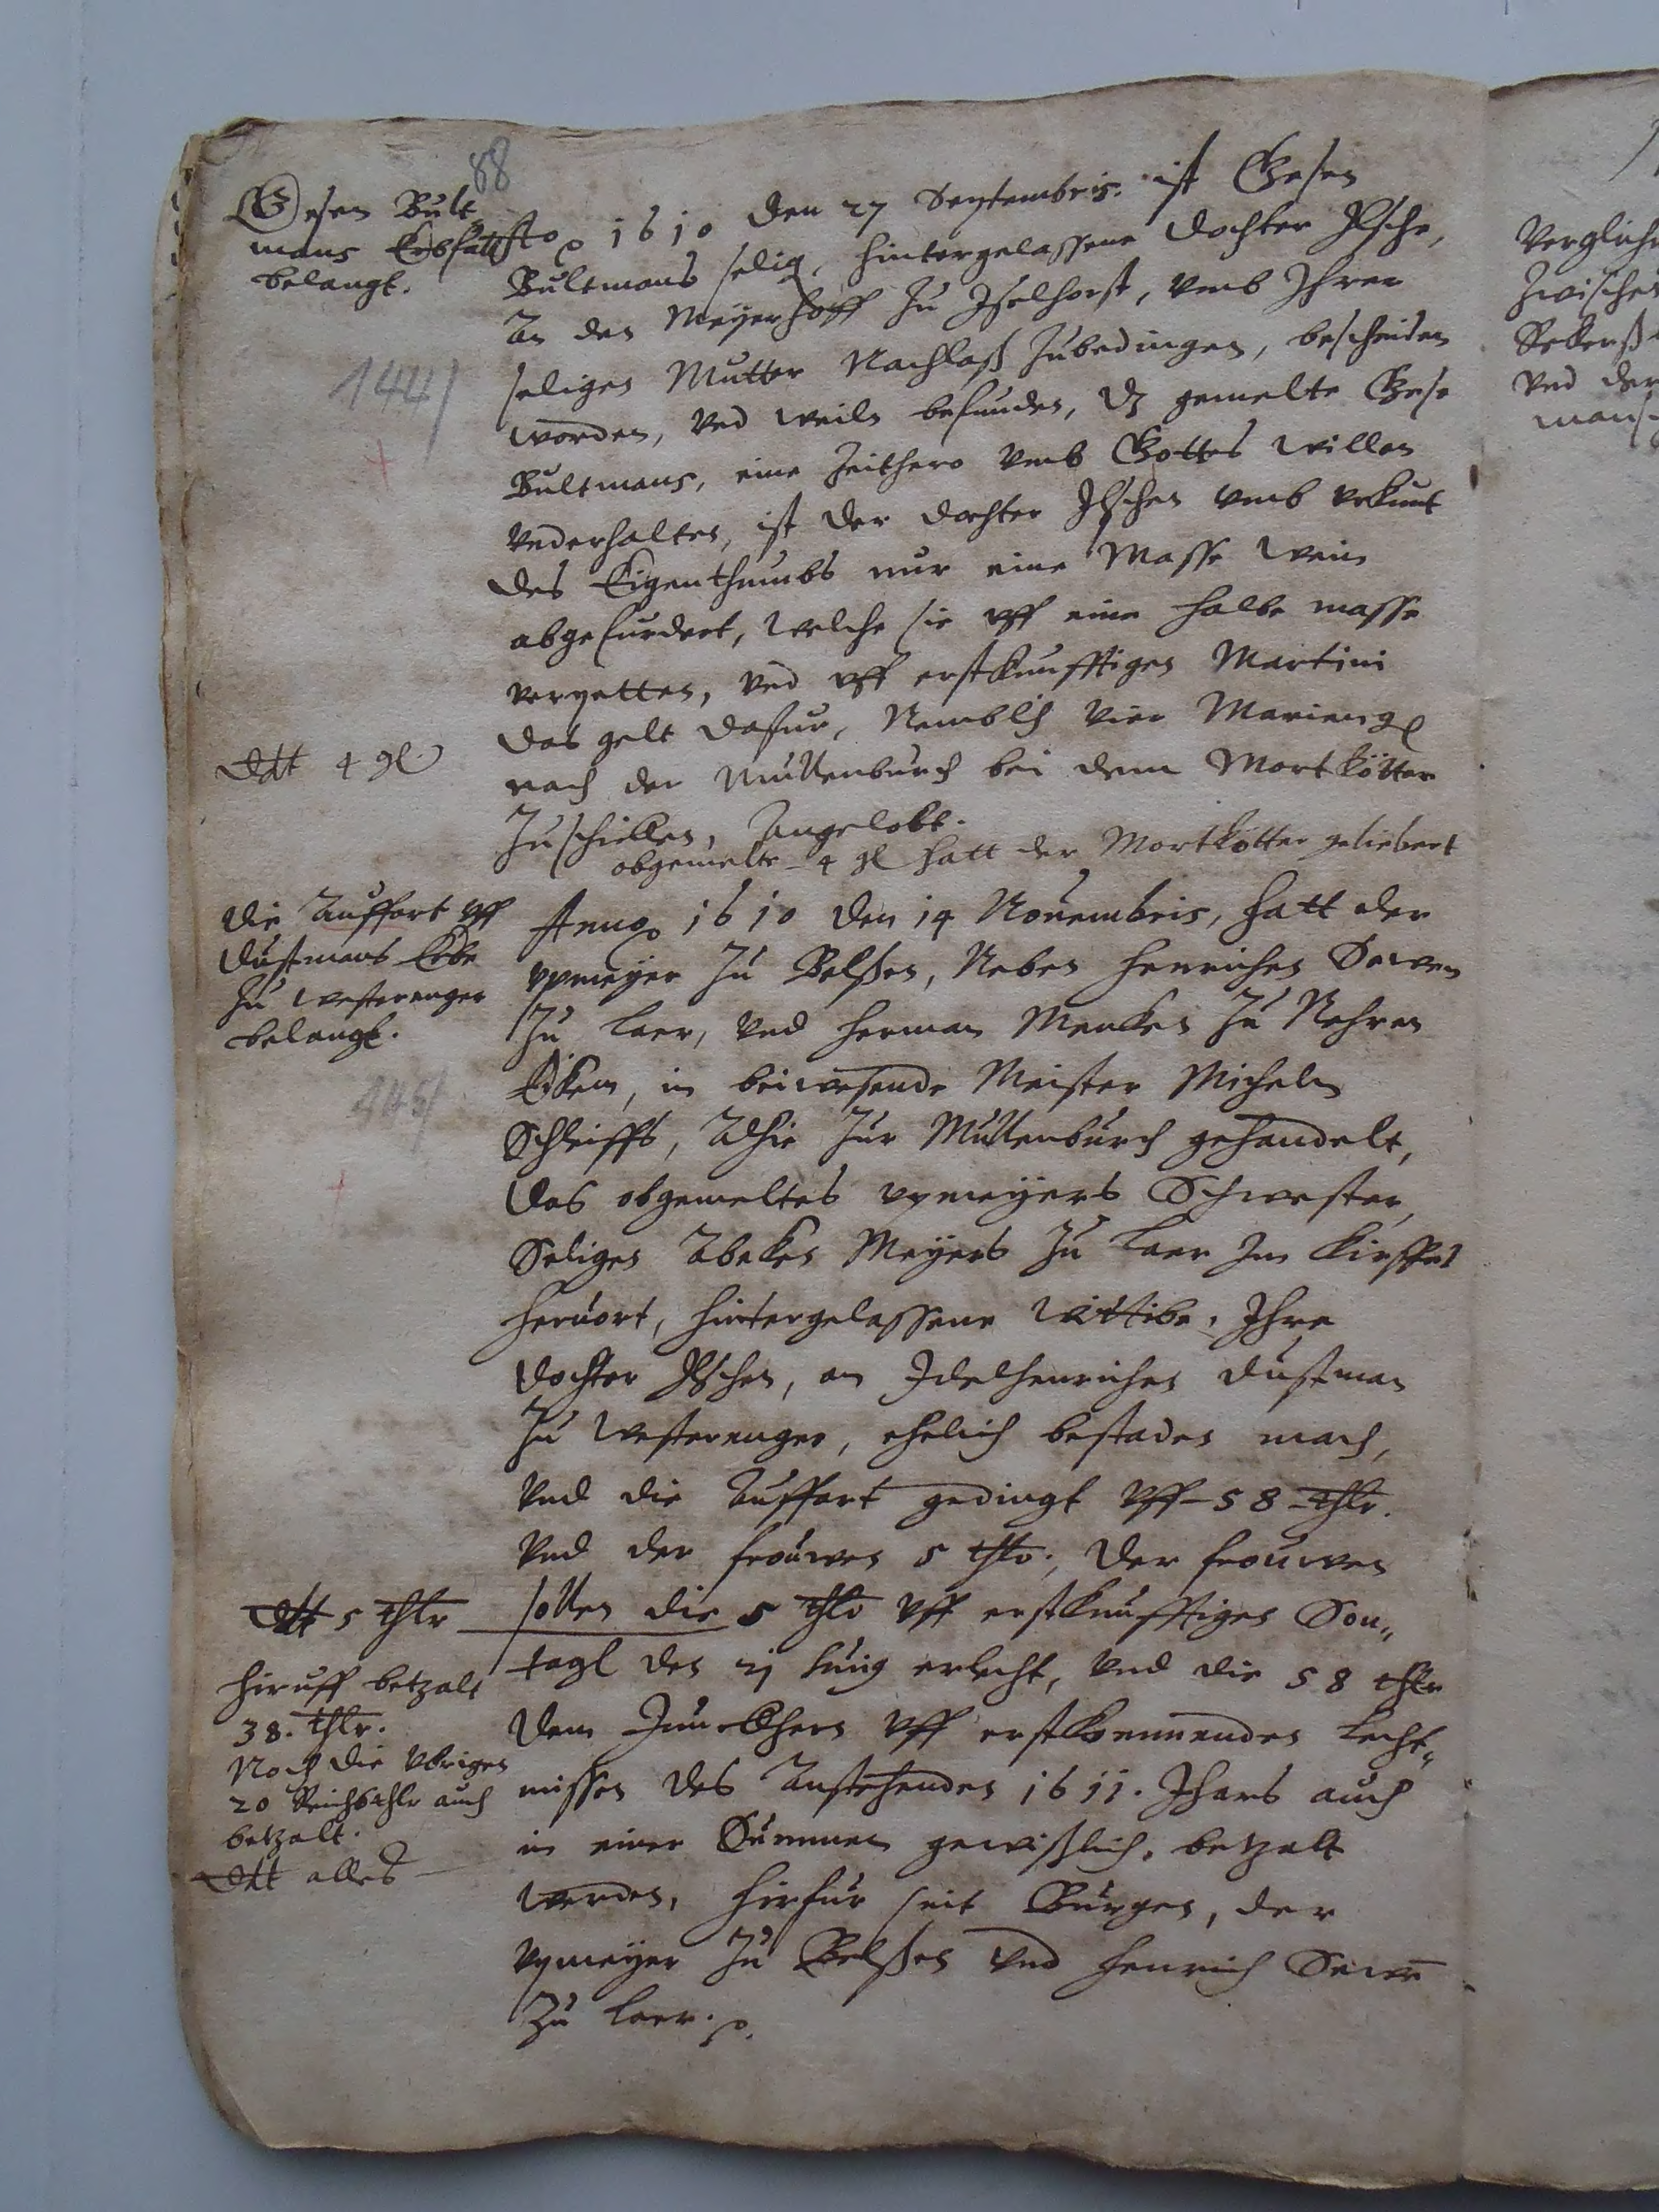 88
Gesen Bult
mans Erbfall
belangt.
144
Ao 1610 den 27 Septembris. ist Gesen
Bultmans selig, hintergelassene dochter Ilsche,
An den Meyerhoff zu Iselhorst, vmb Ihrer
seligen Mutter Nachlaß zubedingen, bescheiden
worden, vnd weiln befunden, dz gemelte Gese
Bultmans, eine Zeithero vmb Gottes willen
vnderhalten, ist der dochter Ilschen vmb vrkunt
des Eigenthumbs nur eine Masse wein
abgefurdert, welche sie vff eine halbe masse
vergetten, vnd vff erstkunfftigen Martini
das gelt dafur, Nemblich vier Marieng
nach der Mullenburch bei dem Mortkötter
zuschicken, Angelobt.
Ddt 4 gl
obgemelte 4 gl hatt der Mortkötter geliebert
die Auffart vff
Dustmans Erbe
zu Westerenger
belangt.
145
Anno 1610 den 14 Nouembris, hatt der
vpmeyer zu Belßen, Neben Henrichen
zu Laer, vnd Herman Mencken zu Nehren
Eicken, in beiwesende Meister Micheln
Schleiffs, Alhie zur Mullenburch gehandelt,
das obgemeltes vpmeyers Schwester,
Seligen Abeken Meyers zu Laer Im Kirspel
Heruort, hintergelassene Wittibe, Ihre
dochter Ilschen, an Idelhenrichen Dustman
zu Westerenger, ehelich bestaden mach,
vnd die Auffart gedingt vff 58 thlr.
vnd der frouwen 5 thlr., der frouwen
sollen die 5 thlr vff erstkunfftigen Son„
tagh den 21 huig erlecht, vnd die 58 thlr
dem Junckhern vff erstkommenden Lecht„
missen des Anstehenden 1611. Jhars auch
in einer Summen gewißlich, betzalt
werden, hirfur seit Burgen, der
vpmeyer zu Belßen vnd Henrich
zu Laer.
Ddt 5 thlr
Hiruff betzalt
38. thlr.
Noch die vbrigen
20 Reichsthlr auch
betzalt.
Ddt alles
Verglich
zwischen
vnd der
mans